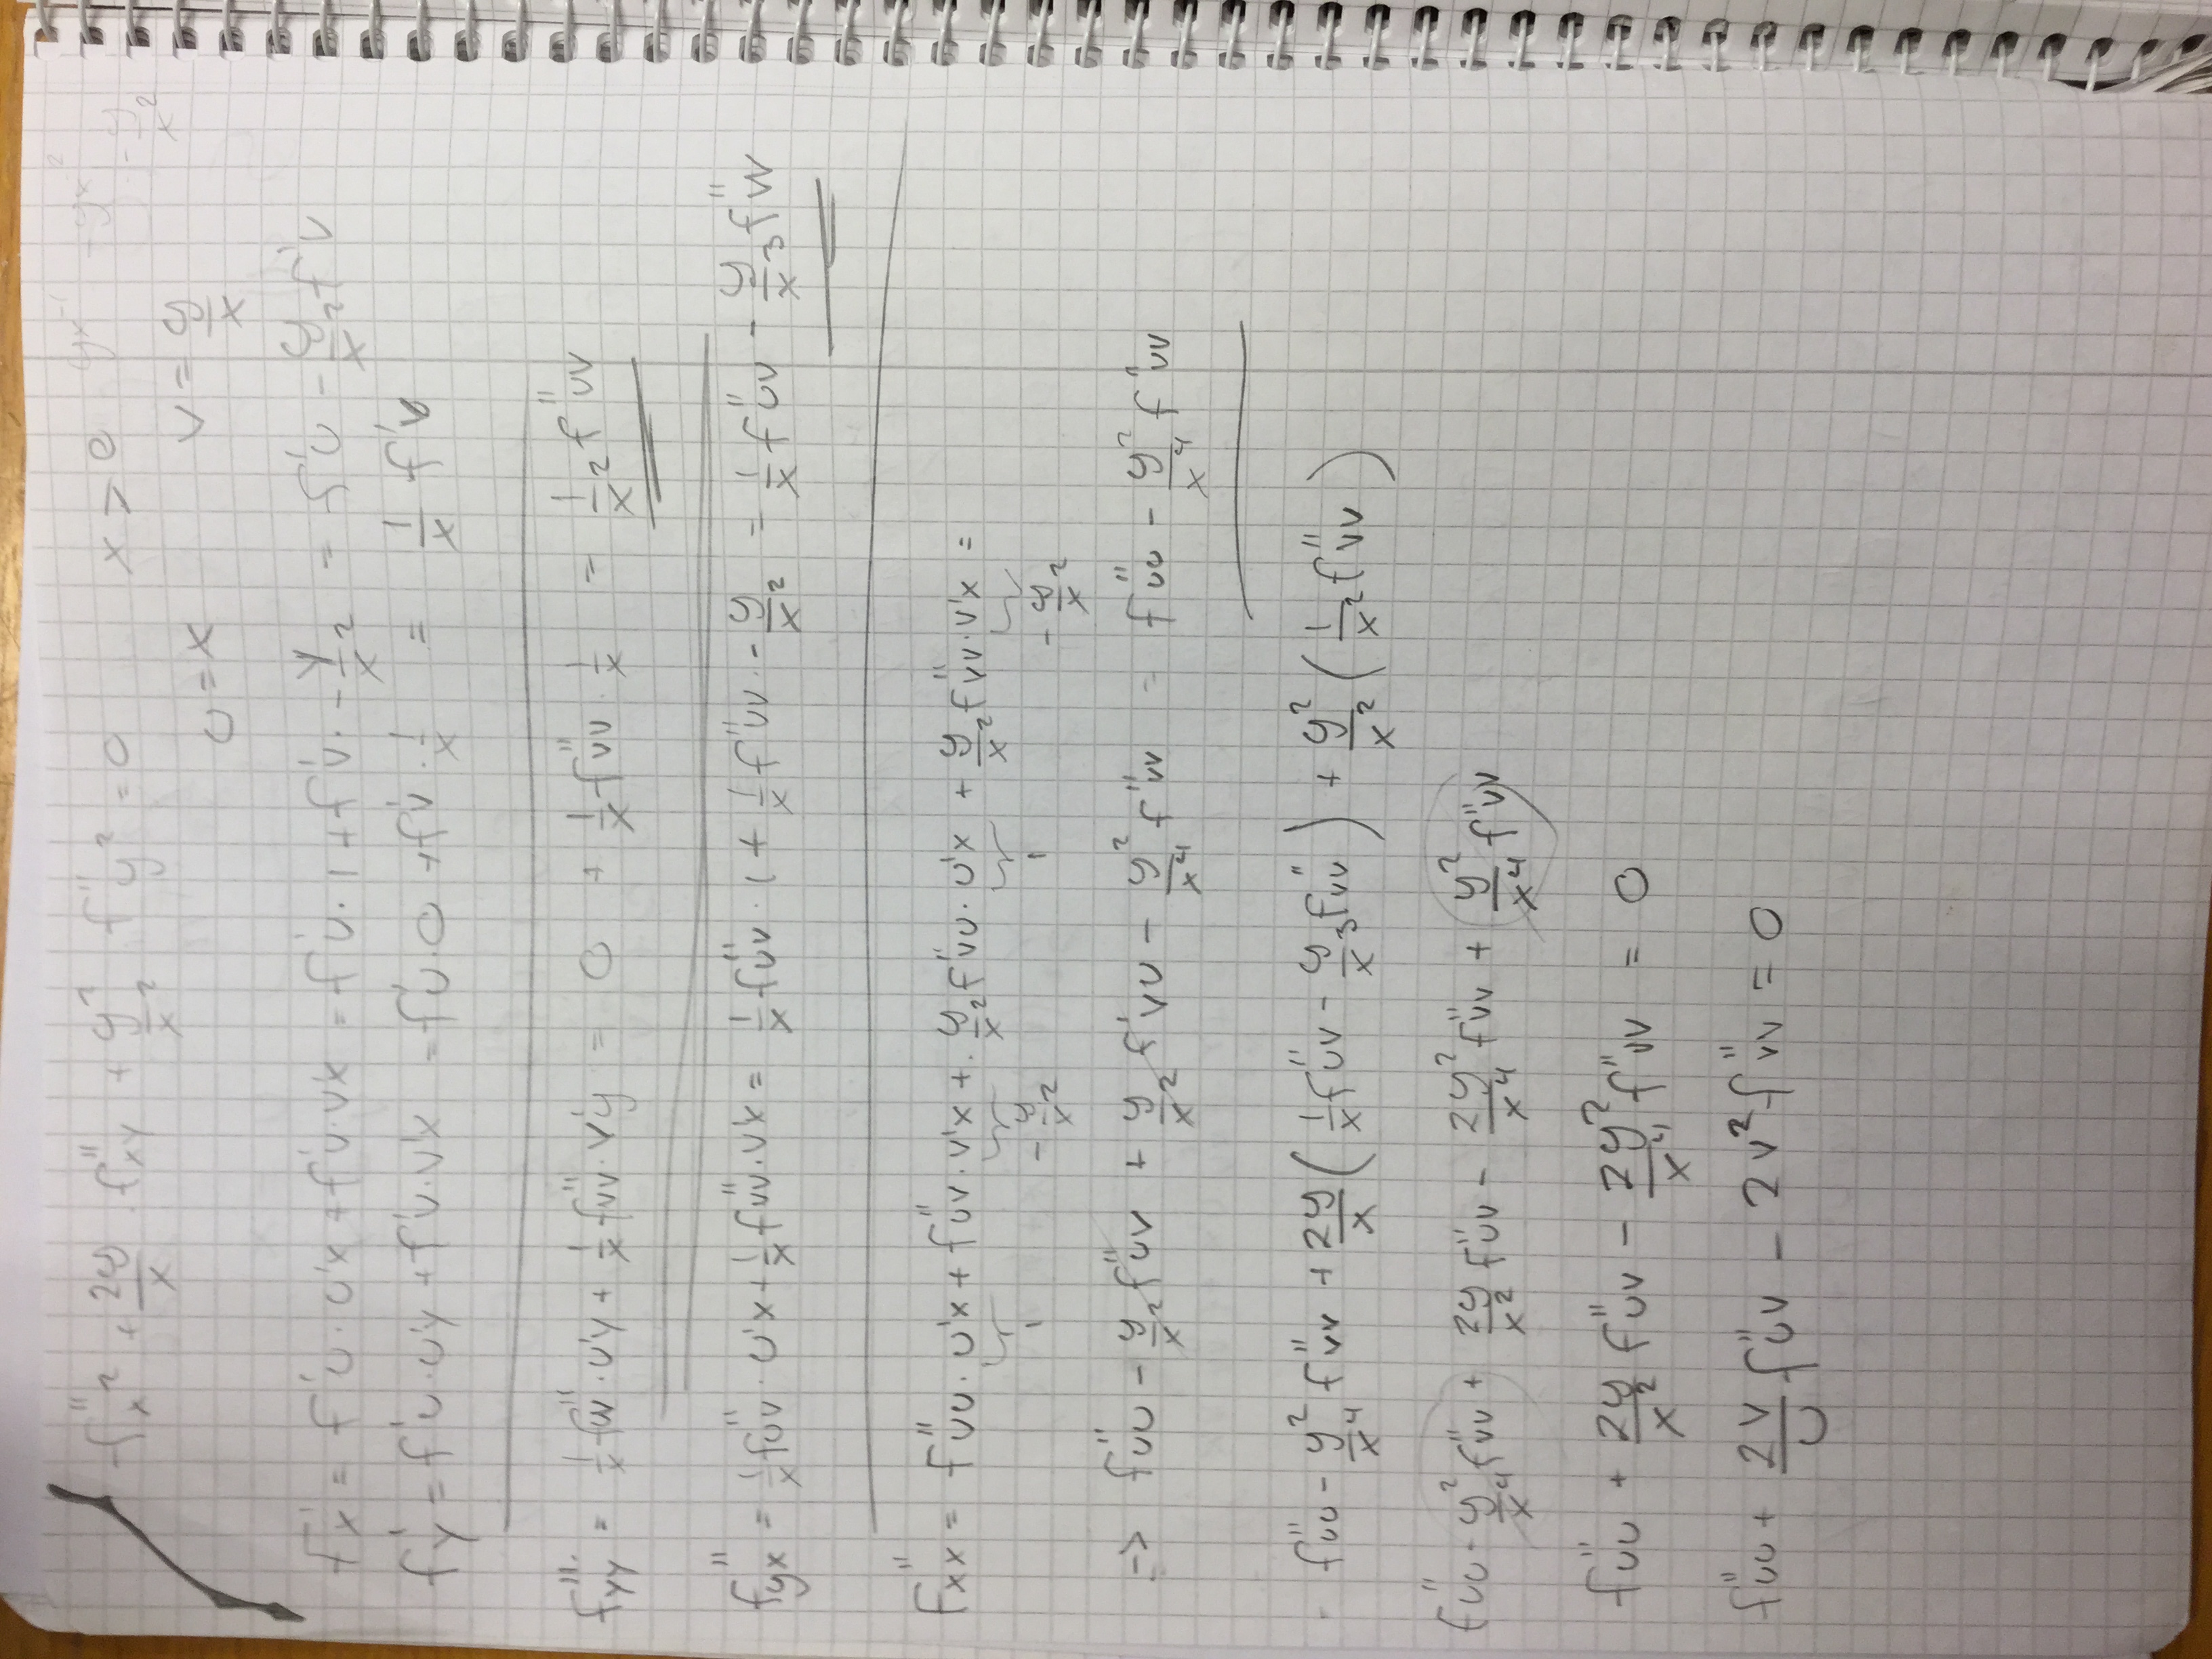 f''x² + 2y/x · f''xy + y²/x² f''y² = 0 x > 0 yx⁻¹ -yx⁻² -y/x²
u = x v = y/x
f'x = f'u · u'x + f'v · v'x = f'u · 1 + f'v · -y/x² = f'u - y/x² f'v
f'y = f'u · u'y + f'v · v'x = f'u · 0 + f'v · 1/x = 1/x f'v
f''yy = 1/x f''vu · u'y + 1/x f''vv · v'y = 0 + 1/x f''vv · 1/x = 1/x² f''vv
f''yx = 1/x f''uv · u'x + 1/x f''vv · v'x = 1/x f''uv · 1 + 1/x f''vv · -y/x² = 1/x f''uv - y/x³ f''vv
f''xx = f''uu · u'x + f''uv · v'x + · y/x² f''vu · u'x + y/x² f''vv · v'x =
1 -y/x² 1 -y/x²
=> f''uu - y/x² f''uv + y/x² f''vu - y²/x⁴ f''vv = f''uu - y²/x⁴ f''vv
f''uu - y²/x⁴ f''vv + 2y/x ( 1/x f''uv - y/x³ f''vv ) + y²/x² ( 1/x² f''vv )
f''uu - y²/x⁴ f''vv + 2y/x² f''uv - 2y²/x⁴ f''vv + y²/x⁴ f''vv
f''uu + 2y/x² f''uv - 2y²/x⁴ f''vv = 0
f''uu + 2v/u f''uv - 2v² f''vv = 0